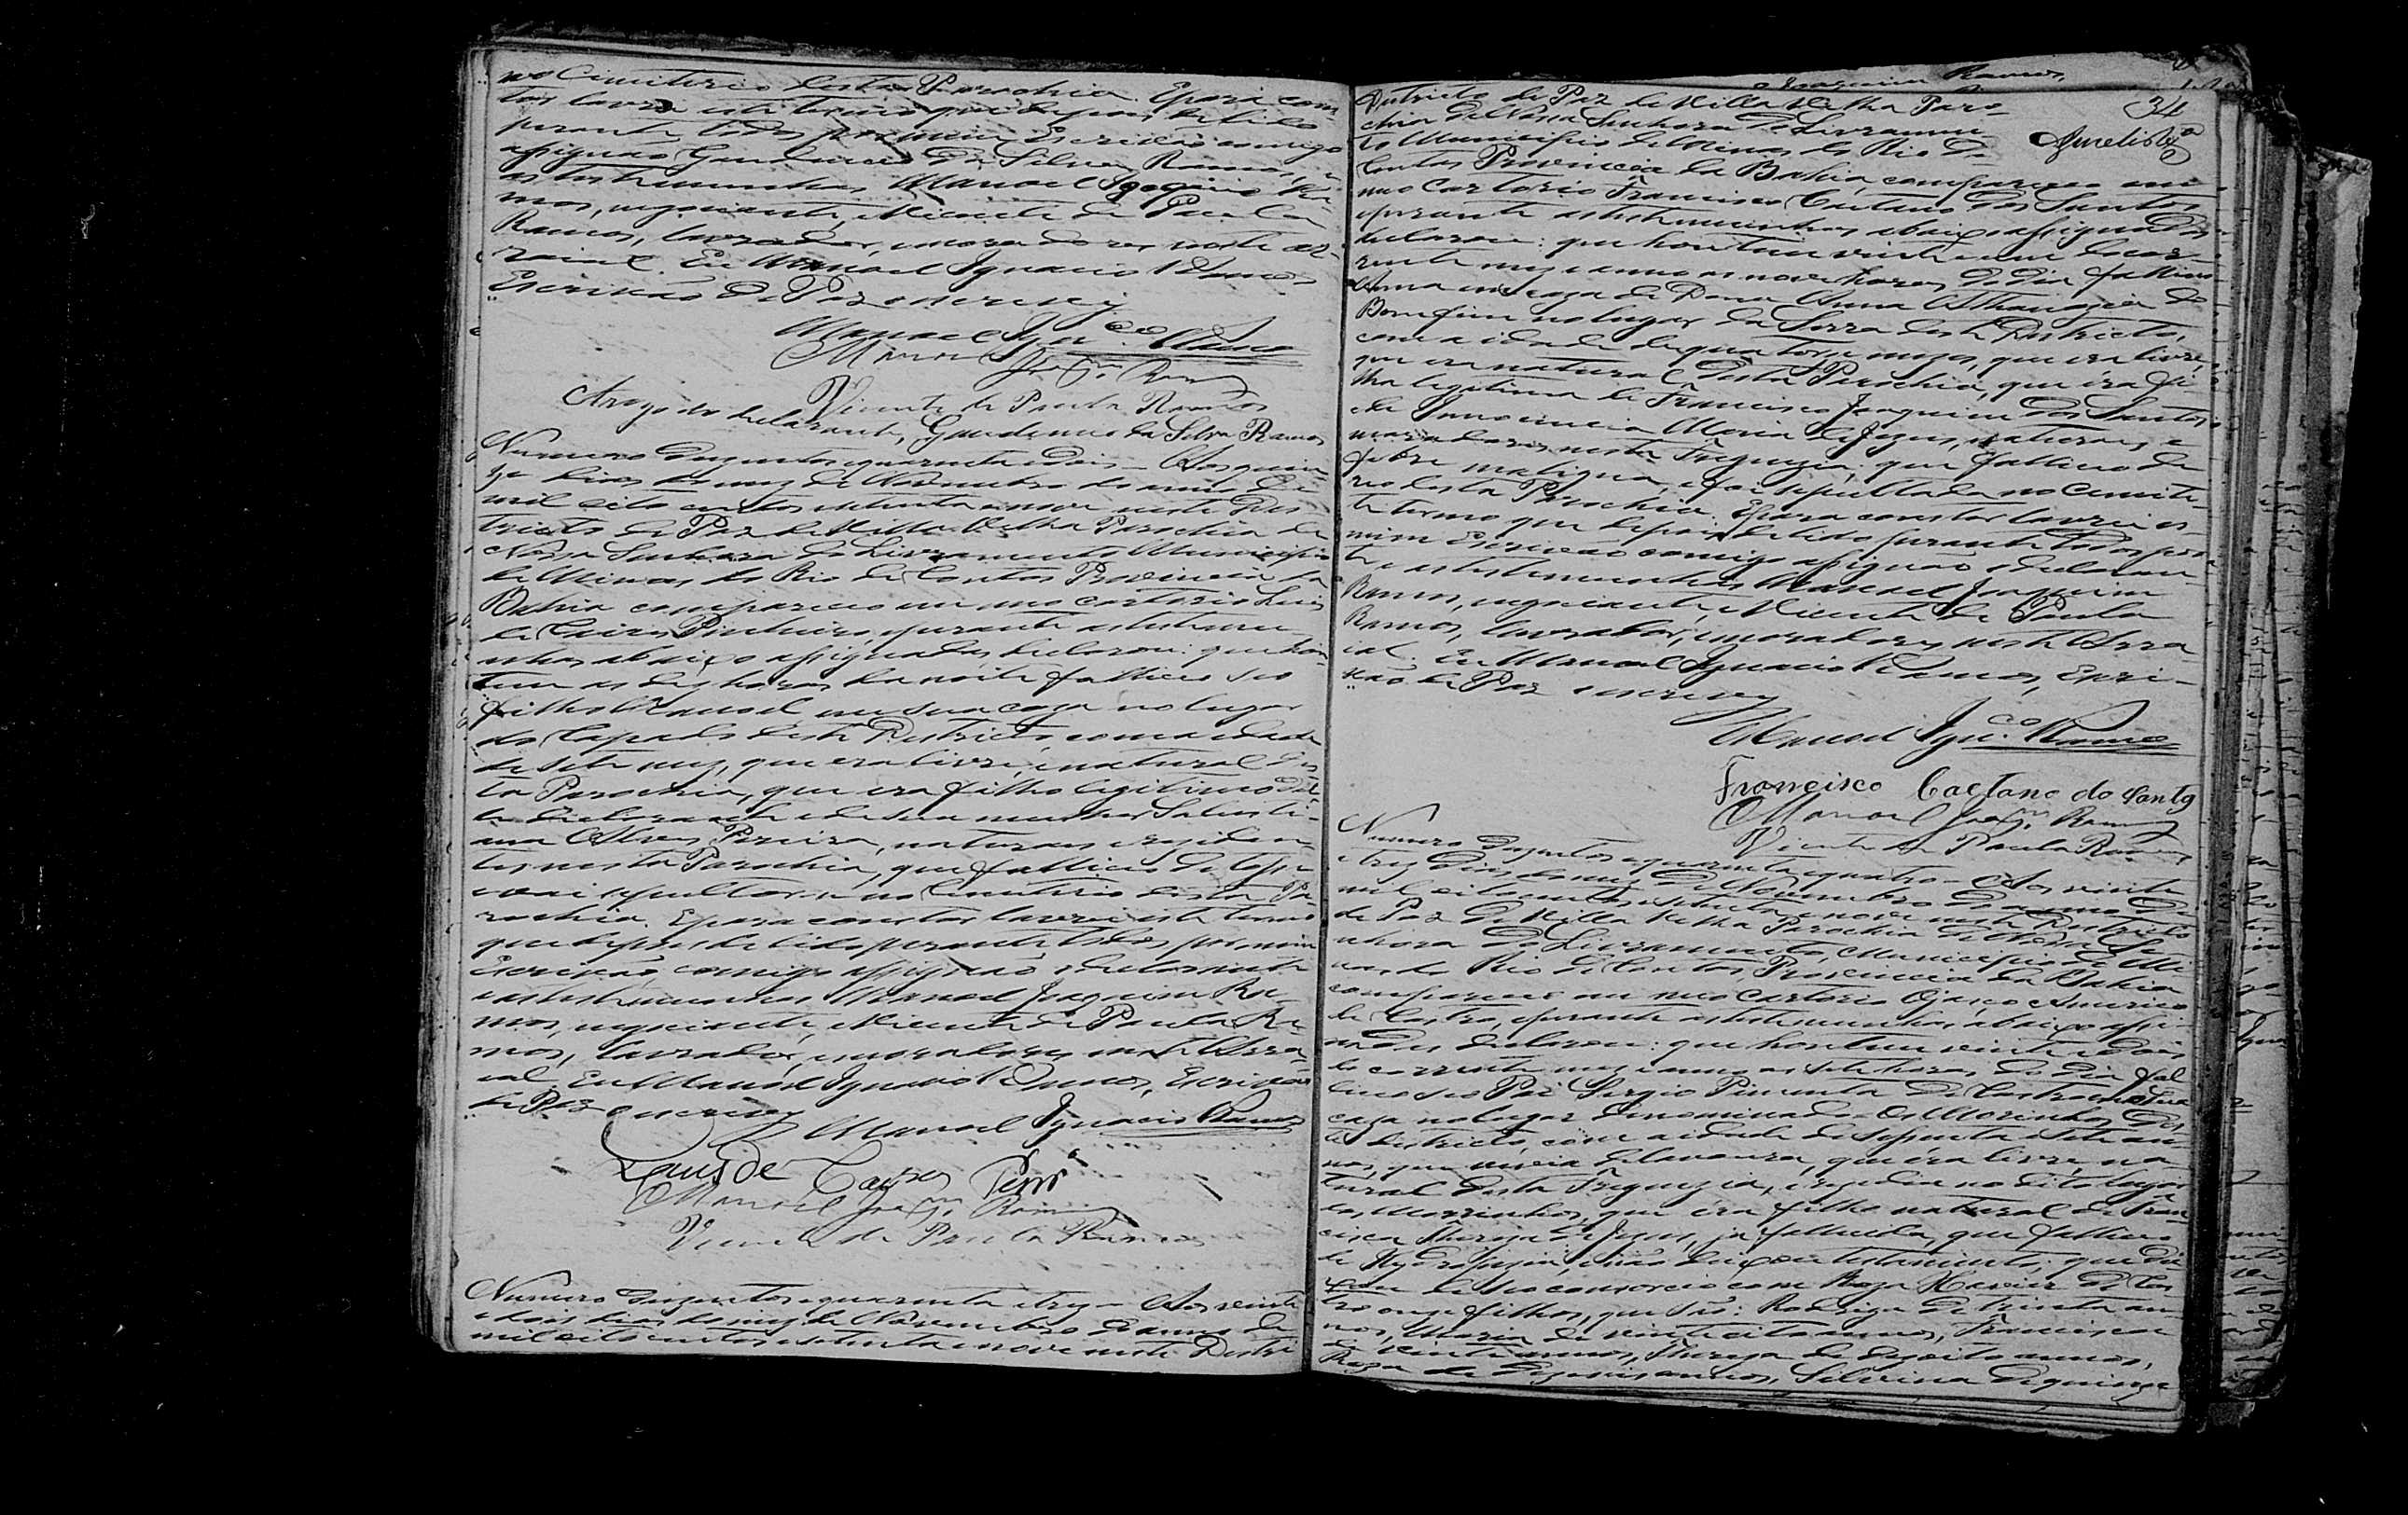 no Cimiterio desta Parochia. E para cons
tar lavrei este termo que depois de lido
perante todos por mim Escrivão comigo
assignão Gaudencio da Silva Ramos, e
as testemunhas Manoel Joaquim Ra-
mos, negociante, Vicente de Paula
Ramos, lavrador, moradores neste ar-
raial. Eu Manoel Ignacio Ramos
Escrivão de Paz o escrevy
Manoel Ign.co Ramos
Manoel Joaqm. Ramos
Vicente de Paula Ramos
Arogo do declarante, Gaudencio da Silva Ramos
Numero duzentos e quarenta e dois — Aos quin-
ze dias do mez de Novembro do anno de
mil oito centos e setenta e nove neste Des
tricto de Paz de Villa Velha Parochia de
Nossa Senhora do Livramento Municipio
de Minas do Rio de Contas Provincia da
Bahia compareceo em meo cartorio Luis
de Caires Pinheiro, e perante as testemu-
nhas abaixo assignadas declarou: que hon-
tem as dez horas da noite falleceo seo
filho Manoel em sua caza no lugar
do Tapado deste Destricto com a idade
de sete mez, que era livre, e natural des-
ta Parochia, que era filho legitimo del-
le declarante e de sua mulher Salusti-
ana Alves Pereira, naturaes e reziden-
tes nesta Parochia, que falleceo de tosse
e vai sepultar-se no Cimiterio desta Pa
rochia. E para constar lavrei este termo
que depois de lido perante todos por mim
Escrivão, comigo assignão o declarante
e as testemunhas Manoel Joaquim Ra-
mos, negociante, e Vicente de Paula Ra-
mos, lavrador, moradores neste Arra-
ial. Eu Manoel Ignacio Ramos, Escrivão
de Paz o escrevy
Manoel Ignacio Ramos
Luis de Caires
Manoel Joaqm. Ramos
Vicente de Paula Ramos
Numero duzentos e quarenta e trez — Aos vinte
e dois dias do mez de Novembro do anno de
mil oito centos e setenta e nove neste Destri
34
Destricto de Paz de Villa Velha Paro-
chia de Nossa Senhora do Livramen-
to Municipio de Minas do Rio de
Contas Provincia da Bahia, compareceo em
meo Cartorio Francisco Caetano dos Santos
e perante as testemunhas abaixo assignadas
declarou: que hontem vinte e um do cor-
rente mez e anno as nove horas do dia falleceo
Anna em caza de Dona Anna Athanazia do
Bomfim no lugar da Serra deste Destricto,
com a idade de quatorze mezes, que era livre,
que era natural desta Parochia, que era fi-
lha legitima de Francisco Joaquim dos Santos
e de Innocencia Maria de Jezus, naturaes e
moradores nesta Freguezia; que falleceo de
febre maligna, e foi sepultada no Cimite-
rio desta Parochia. E para constar lavrei es-
te termo que depois de lido perante todos por
mim Escrivão comigo assignão o declaran
te e as testemunhas Manoel Joaquim
Ramos, negociante, e Vicente de Paula
Ramos, lavrador, moradores neste Arra-
ial. Eu Manoel Ignacio Ramos, Escri-
vão de Paz o escrevy
Manoel Ign.co Ramos
Francisco Caetano do Santo
Manoel Joaqm. Ramos
Vicente de Paula Ramos
Numero duzentos e quarenta e quatro — Aos vinte
e trez dias do mez de Novembro do anno de
mil oito centos e setenta e nove neste Destricto
de Paz de Villa Velha Parochia de Nossa Se
nhora do Livramento, Municipio de Mi
nas do Rio de Contas, Provincia da Bahia
compareceo em meo Cartorio Americo
de Castro, e perante as testemunhas abaixo assi-
nadas declarou: que hontem vinte e dois
do corrente mez e anno as sete horas do dia fal
leceo seo Pai Sergio Pimenta de Castro em sua
caza no lugar denominado Os Morrinhos des
te Destricto, com a idade de sessenta e sete an
nos, que vivia de lavoura, que era livre, na-
tural desta Freguezia, e rezedia no dito lugar
dos Morrinhos, que era filho natural de Fran-
cisca Thereza de Jezus, já fallecida, que falleceo
de Hydropezia, e não deixou testamento, que dei
xou de seo consorcio com Roza Xavier de Cas
tro onze filhos, que são: Rodriga de trinta an
nos, Maria de vinte e oito annos, Francisca
de vinte annos, Thereza de dezoito annos,
Roza de dezeseis annos, Silvina de quinze